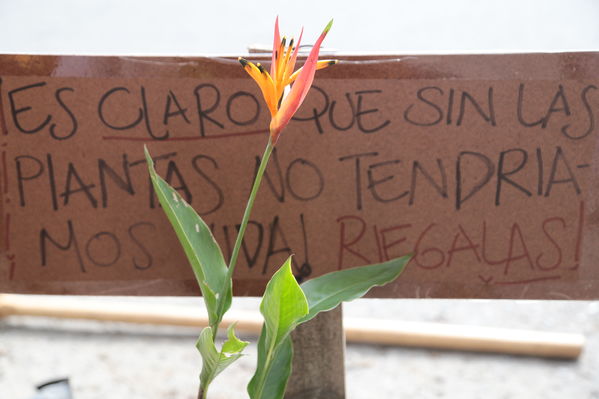 ¡ES CLARO QUE SIN LAS
PLANTAS NO TENDRIA-
MOS VIDA! RIEGALAS!